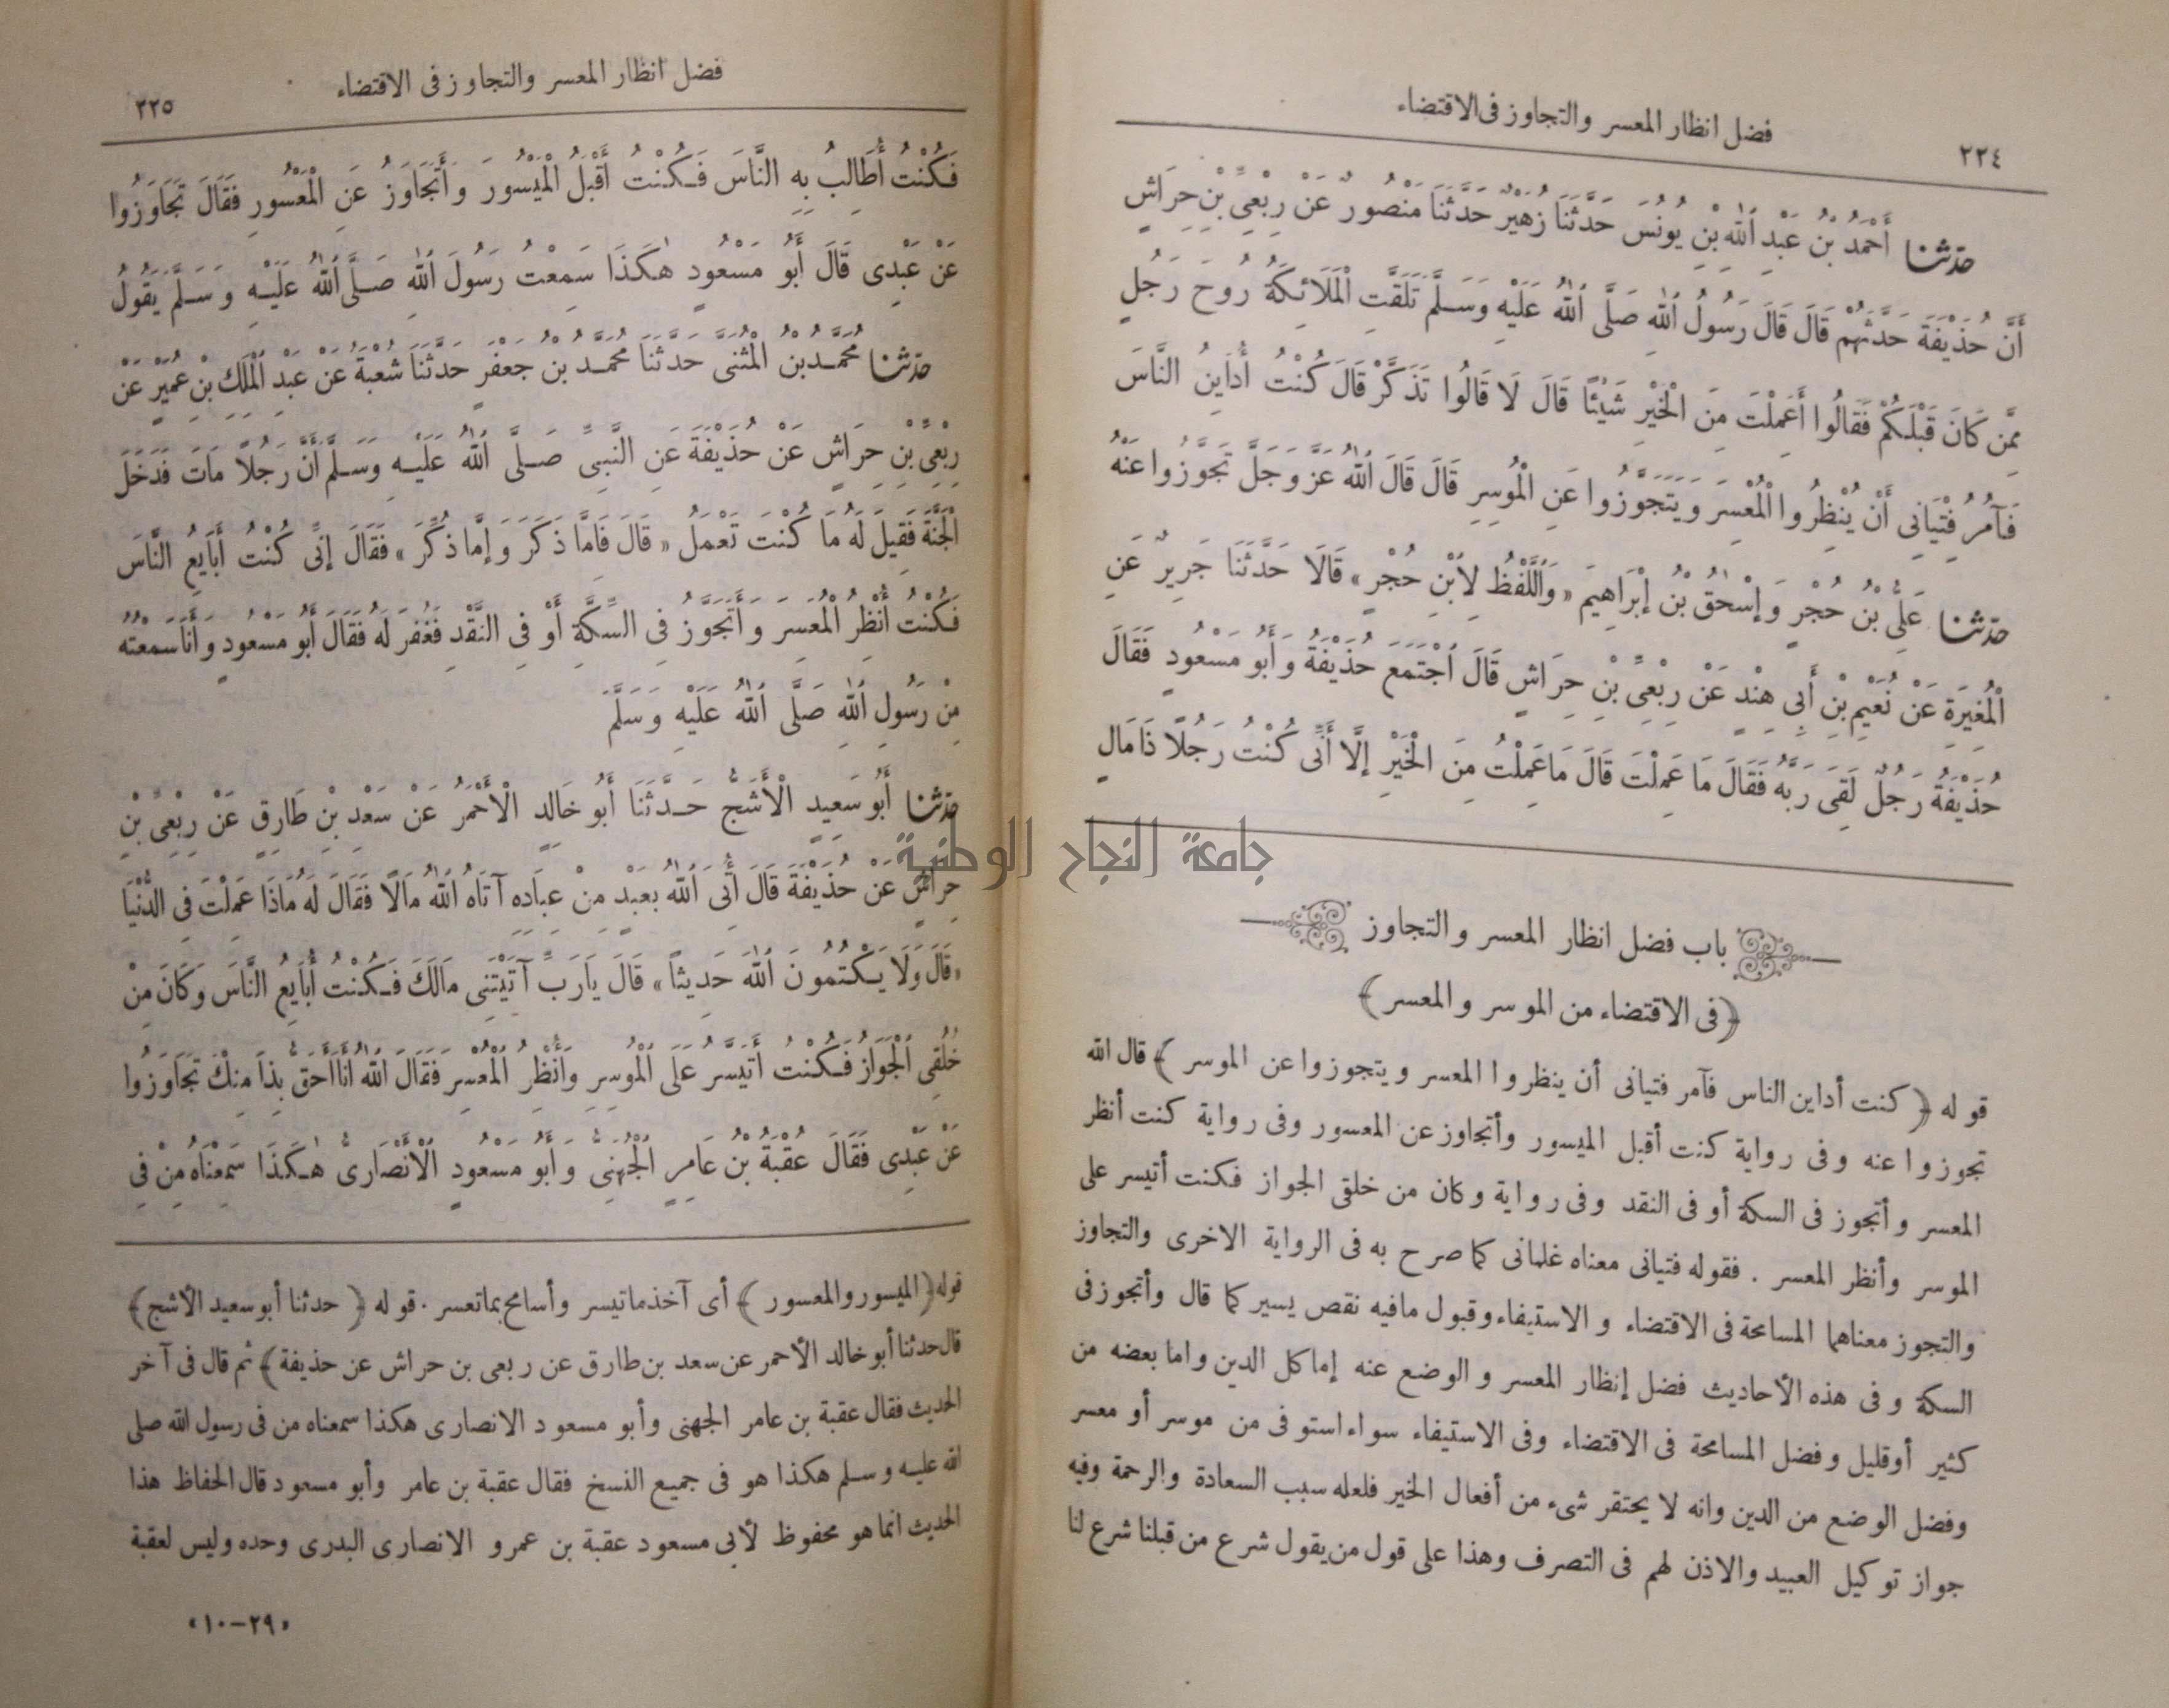 فضل انظار المعسر والتجاوز فى الاقتضاء
٢٢٤
حَدَّثَنَا أَحْمَدُ بْنُ عَبْدِ اللّٰهِ بْنِ يُونُسَ حَدَّثَنَا زُهَيْرٌ حَدَّثَنَا مَنْصُورٌ عَنْ رِبْعِىِّ بْنِ حِرَاشٍ
أَنَّ حُذَيْفَةَ حَدَّثَهُمْ قَالَ قَالَ رَسُولُ اللّٰهِ صَلَّى اللّٰهُ عَلَيْهِ وَسَلَّمَ تَلَقَّتِ الْمَلَائِكَةُ رُوحَ رَجُلٍ
مِمَّنْ كَانَ قَبْلَكُمْ فَقَالُوا أَعَمِلْتَ مِنَ الْخَيْرِ شَيْئًا قَالَ لَا قَالُوا تَذَكَّرْ قَالَ كُنْتُ أُدَايِنُ النَّاسَ
فَآمُرُ فِتْيَانِى أَنْ يُنْظِرُوا الْمُعْسِرَ وَيَتَجَوَّزُوا عَنِ الْمُوسِرِ قَالَ قَالَ اللّٰهُ عَزَّ وَجَلَّ تَجَوَّزُوا عَنْهُ
حَدَّثَنَا عَلِىُّ بْنُ حُجْرٍ وَإِسْحٰقُ بْنُ إِبْرَاهِيمَ «وَاللَّفْظُ لِابْنِ حُجْرٍ» قَالَا حَدَّثَنَا جَرِيرٌ عَنِ
الْمُغِيرَةِ عَنْ نُعَيْمِ بْنِ أَبِى هِنْدٍ عَنْ رِبْعِىِّ بْنِ حِرَاشٍ قَالَ اجْتَمَعَ حُذَيْفَةُ وَأَبُو مَسْعُودٍ فَقَالَ
حُذَيْفَةُ رَجُلٌ لَقِىَ رَبَّهُ فَقَالَ مَا عَمِلْتَ قَالَ مَا عَمِلْتُ مِنَ الْخَيْرِ إِلَّا أَنِّى كُنْتُ رَجُلًا ذَا مَالٍ
باب فضل انظار المعسر والتجاوز
﴿فى الاقتضاء من الموسر والمعسر﴾
قوله ﴿كنت أداين الناس فآمر فتيانى أن ينظروا المعسر ويتجوزوا عن الموسر﴾ قال الله
تجوزوا عنه وفى رواية كنت أقبل الميسور وأتجاوز عن المعسور وفى رواية كنت أنظر
المعسر وأتجوز فى السكة أو فى النقد وفى رواية وكان من خلقى الجواز فكنت أتيسر على
الموسر وأنظر المعسر . فقوله فتيانى معناه غلمانى كما صرح به فى الرواية الاخرى والتجاوز
والتجوز معناهما المسامحة فى الاقتضاء والاستيفاء وقبول مافيه نقص يسير كما قال وأتجوز فى
السكة وفى هذه الأحاديث فضل إنظار المعسر والوضع عنه إما كل الدين واما بعضه من
كثير أو قليل وفضل المسامحة فى الاقتضاء وفى الاستيفاء سواء استوفى من موسر أو معسر
وفضل الوضع من الدين وانه لا يحتقر شىء من أفعال الخير فلعله سبب السعادة والرحمة وفيه
جواز توكيل العبيد والاذن لهم فى التصرف وهذا على قول من يقول شرع من قبلنا شرع لنا
فضل انظار المعسر والتجاوز فى الاقتضاء
٢٢٥
فَكُنْتُ أُطَالِبُ بِهِ النَّاسَ فَكُنْتُ أَقْبَلُ الْمَيْسُورَ وَأَتَجَاوَزُ عَنِ الْمَعْسُورِ فَقَالَ تَجَاوَزُوا
عَنْ عَبْدِى قَالَ أَبُو مَسْعُودٍ هٰكَذَا سَمِعْتُ رَسُولَ اللّٰهِ صَلَّى اللّٰهُ عَلَيْهِ وَسَلَّمَ يَقُولُ
حَدَّثَنَا مُحَمَّدُ بْنُ الْمُثَنَّى حَدَّثَنَا مُحَمَّدُ بْنُ جَعْفَرٍ حَدَّثَنَا شُعْبَةُ عَنْ عَبْدِ الْمَلِكِ بْنِ عُمَيْرٍ عَنْ
رِبْعِىِّ بْنِ حِرَاشٍ عَنْ حُذَيْفَةَ عَنِ النَّبِىِّ صَلَّى اللّٰهُ عَلَيْهِ وَسَلَّمَ أَنَّ رَجُلًا مَاتَ فَدَخَلَ
الْجَنَّةَ فَقِيلَ لَهُ مَا كُنْتَ تَعْمَلُ «قَالَ فَإِمَّا ذَكَرَ وَإِمَّا ذُكِّرَ» فَقَالَ إِنِّى كُنْتُ أُبَايِعُ النَّاسَ
فَكُنْتُ أُنْظِرُ الْمُعْسِرَ وَأَتَجَوَّزُ فِى السِّكَّةِ أَوْ فِى النَّقْدِ فَغُفِرَ لَهُ فَقَالَ أَبُو مَسْعُودٍ وَأَنَا سَمِعْتُهُ
مِنْ رَسُولِ اللّٰهِ صَلَّى اللّٰهُ عَلَيْهِ وَسَلَّمَ
حَدَّثَنَا أَبُو سَعِيدٍ الْأَشَجُّ حَدَّثَنَا أَبُو خَالِدٍ الْأَحْمَرُ عَنْ سَعْدِ بْنِ طَارِقٍ عَنْ رِبْعِىِّ بْنِ
حِرَاشٍ عَنْ حُذَيْفَةَ قَالَ أُتِىَ اللّٰهُ بِعَبْدٍ مِنْ عِبَادِهِ آتَاهُ اللّٰهُ مَالًا فَقَالَ لَهُ مَاذَا عَمِلْتَ فِى الدُّنْيَا
«قَالَ وَلَا يَكْتُمُونَ اللّٰهَ حَدِيثًا» قَالَ يَارَبِّ آتَيْتَنِى مَالَكَ فَكُنْتُ أُبَايِعُ النَّاسَ وَكَانَ مِنْ
خُلُقِى الْجَوَازُ فَكُنْتُ أَتَيَسَّرُ عَلَى الْمُوسِرِ وَأُنْظِرُ الْمُعْسِرَ فَقَالَ اللّٰهُ أَنَا أَحَقُّ بِذَا مِنْكَ تَجَاوَزُوا
عَنْ عَبْدِى فَقَالَ عُقْبَةُ بْنُ عَامِرٍ الْجُهَنِىُّ وَأَبُو مَسْعُودٍ الْأَنْصَارِىُّ هٰكَذَا سَمِعْنَاهُ مِنْ فِى
قوله ﴿الميسور والمعسور﴾ أى آخذ ماتيسر وأسامح بماتعسر . قوله ﴿حدثنا أبو سعيد الأشج﴾
قال حدثنا أبو خالد الأحمر عن سعد بن طارق عن ربعى بن حراش عن حذيفة﴾ ثم قال فى آخر
الحديث فقال عقبة بن عامر الجهنى وأبو مسعود الانصارى هكذا سمعناه من فى رسول الله صلى
الله عليه وسلم هكذا هو فى جميع النسخ فقال عقبة بن عامر وأبو مسعود قال الحفاظ هذا
الحديث انما هو محفوظ لأبى مسعود عقبة بن عمرو الانصارى البدرى وحده وليس لعقبة
«٢٩-١٠»
جامعة النجاح الوطنية